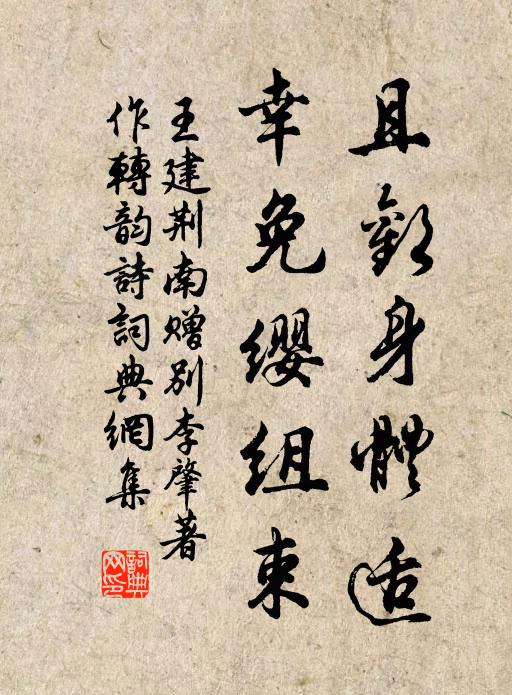 且歡身體適
幸免纓組束
王建荆南赠别李肇著
作轉韵詩詞典網集
詞典网印